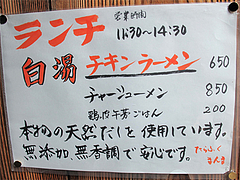 ランチ 営業時間
11:30〜14:30
白湯 チキンラーメン 650
チャーシューメン 850
鶏肉牛蒡ごはん 200
本物の天然だしを使用しています。
無添加、無香調で安心です。